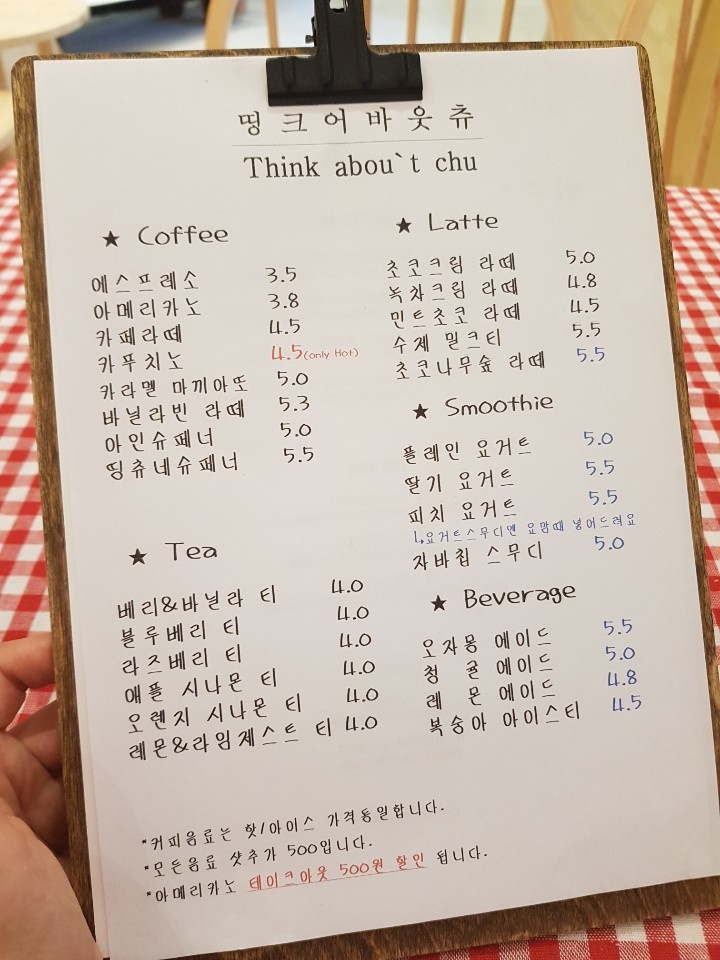 띵크어바웃츄
Think abou`t chu
★ Coffee
에스프레소 3.5
아메리카노 3.8
카페라떼 4.5
카푸치노 4.5(only Hot)
카라멜 마끼아또 5.0
바닐라빈 라떼 5.3
아인슈페너 5.0
띵츄네슈페너 5.5
★ Tea
베리&바닐라 티 4.0
블루베리 티 4.0
라즈베리 티 4.0
애플 시나몬 티 4.0
오렌지 시나몬 티 4.0
레몬&라임제스트 티 4.0
★ Latte
초코크림 라떼 5.0
녹차크림 라떼 4.8
민트초코 라떼 4.5
수제 밀크티 5.5
초코나무숲 라떼 5.5
★ Smoothie
플레인 요거트 5.0
딸기 요거트 5.5
피치 요거트 5.5
↳요거트스무디엔 요맘때 넣어드려요
자바칩 스무디 5.0
★ Beverage
오자몽 에이드 5.5
청 귤 에이드 5.0
레 몬 에이드 4.8
복숭아 아이스티 4.5
*커피음료는 핫/아이스 가격동일합니다.
*모든음료 샷추가 500입니다.
*아메리카노 테이크아웃 500원 할인 됩니다.